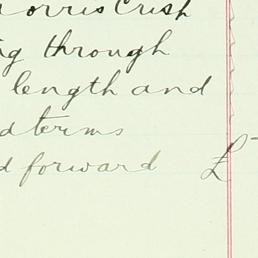 orris Crisp
ng through
length and
d terms
d forward £